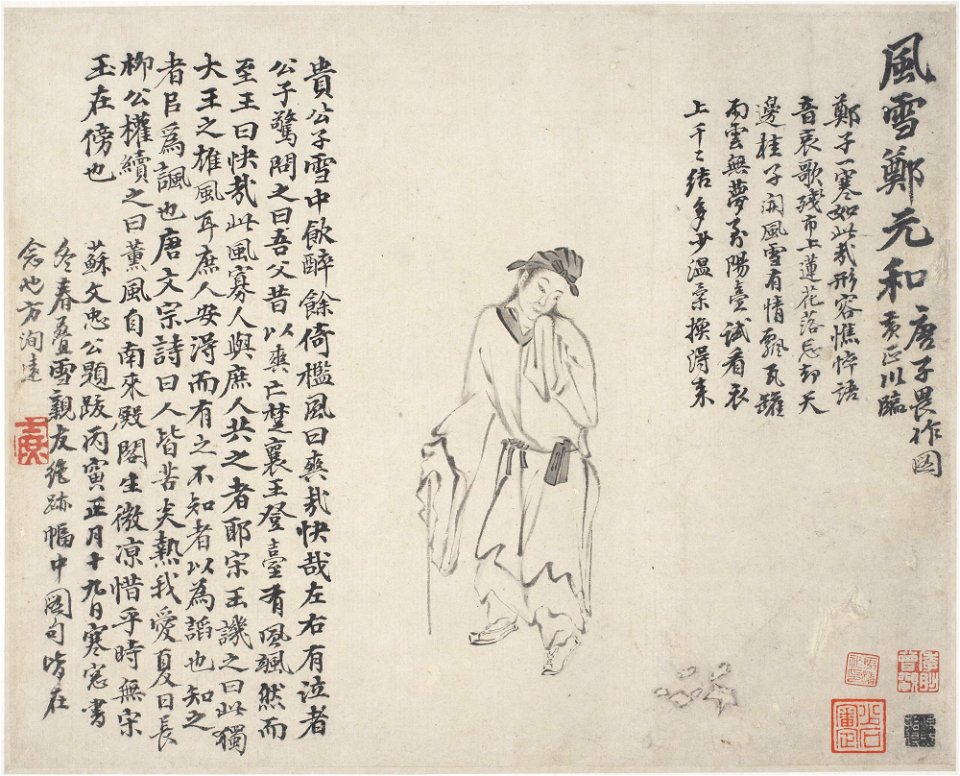 風雪鄭元和 唐子畏作圖
黃正川臨
鄭子一寒如此哉形容憔悴語
音哀歌殘市上蓮花落忘却天
邊桂子開風雪有情飄瓦罐
雨雲無夢到陽臺試看衣
上千〻結多少溫柔換得來
貴公子雪中飲醉餘倚檻風曰爽哉快哉左右有泣者
公子驚問之曰吾父昔以爽亡楚襄王登臺有風颯然而
至王曰快哉此風寡人與庶人共之者耶宋玉譏之曰此獨
大王之雄風耳庶人安得而有之不知者以為諂也知之
者以爲諷也唐文宗詩曰人皆苦炎熱我愛夏日長
柳公權續之曰薰風自南來殿閣生微凉惜乎時無宋
玉在傍也
蘇文忠公題跋丙寅正月十九日寒窓書
冬春叠雪親友絶跡幅中圖句皆在
念也方洵遠